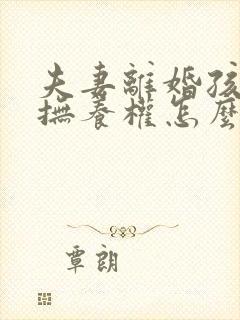 夫妻離婚孩
撫養權怎麼
覃朗